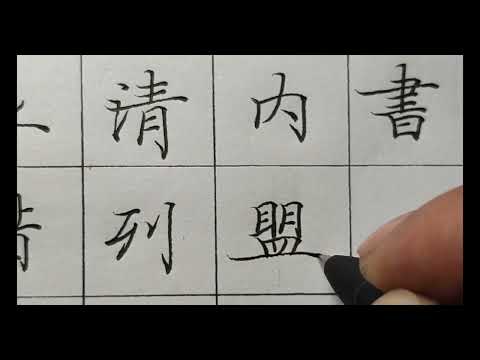 请内書
列盟